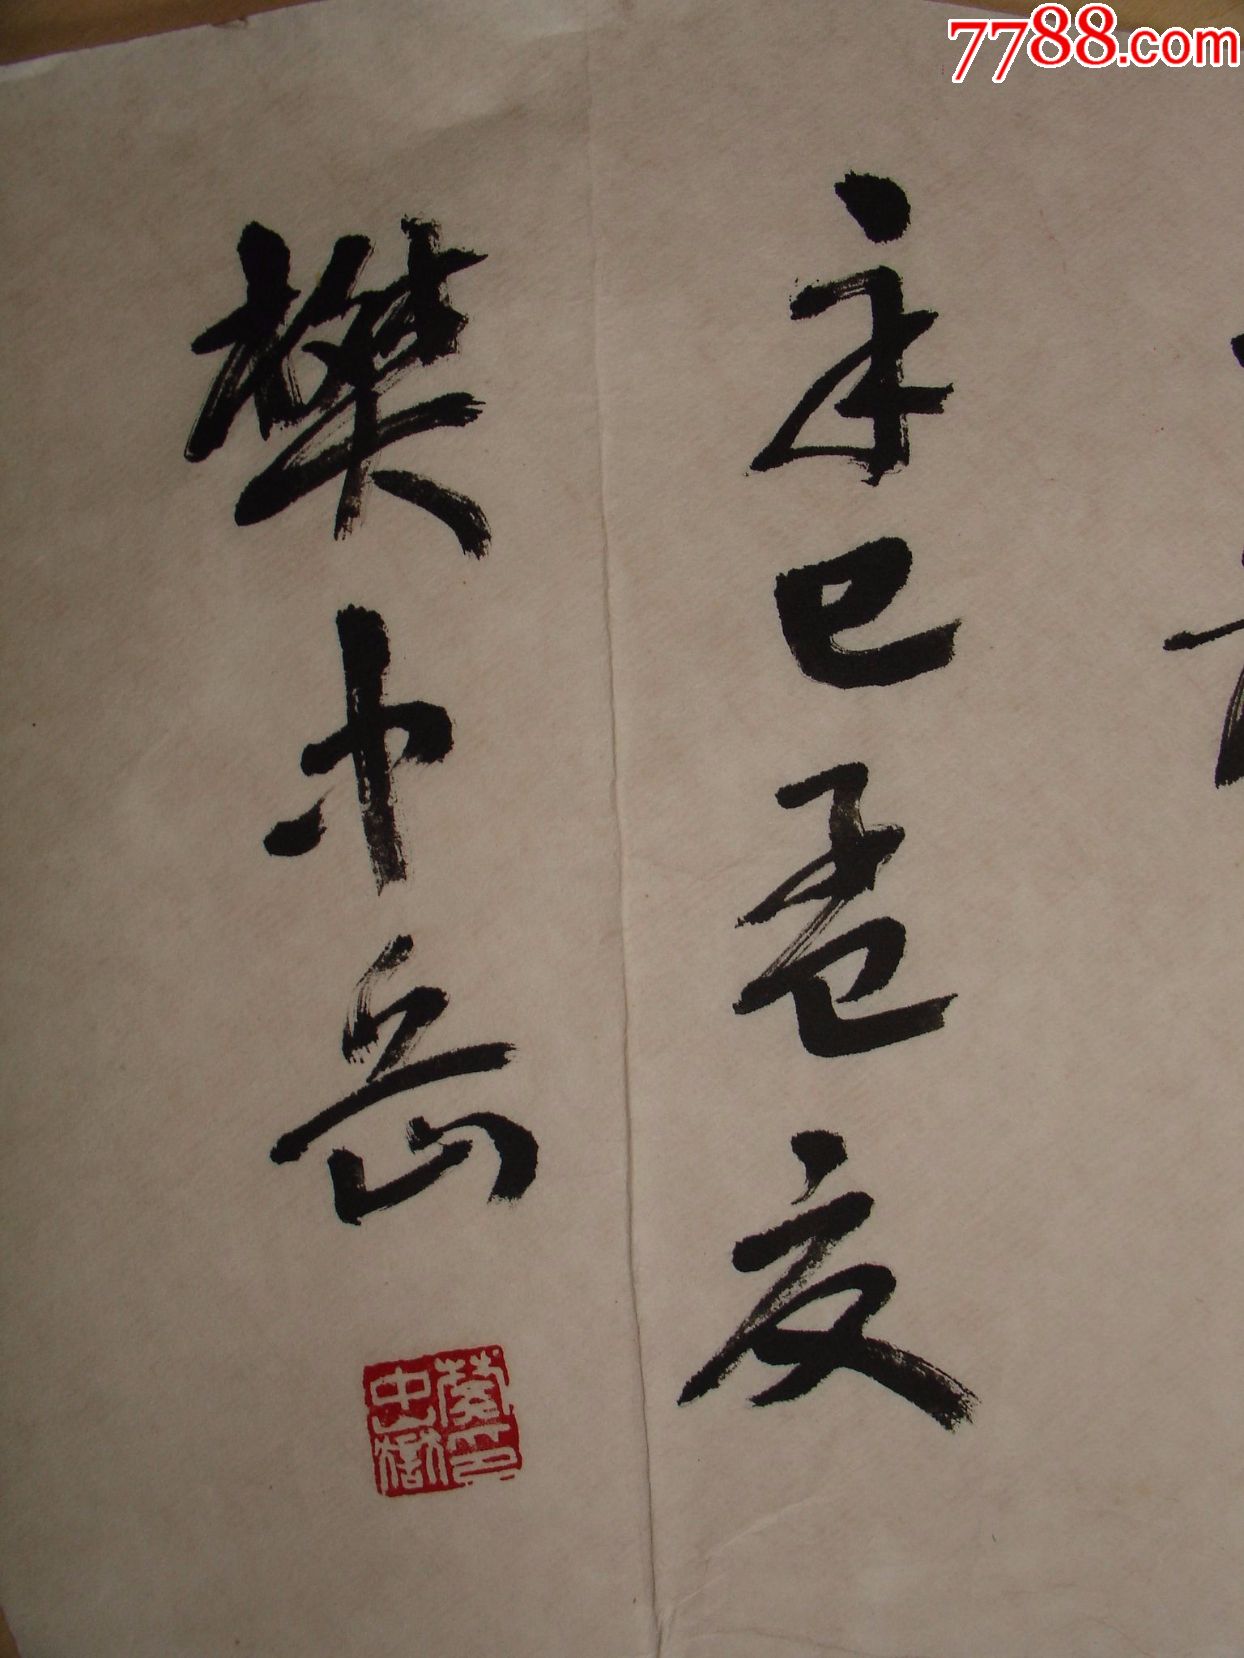 7788.com
辛巳孟夏
樊中岳
樊印
中岳